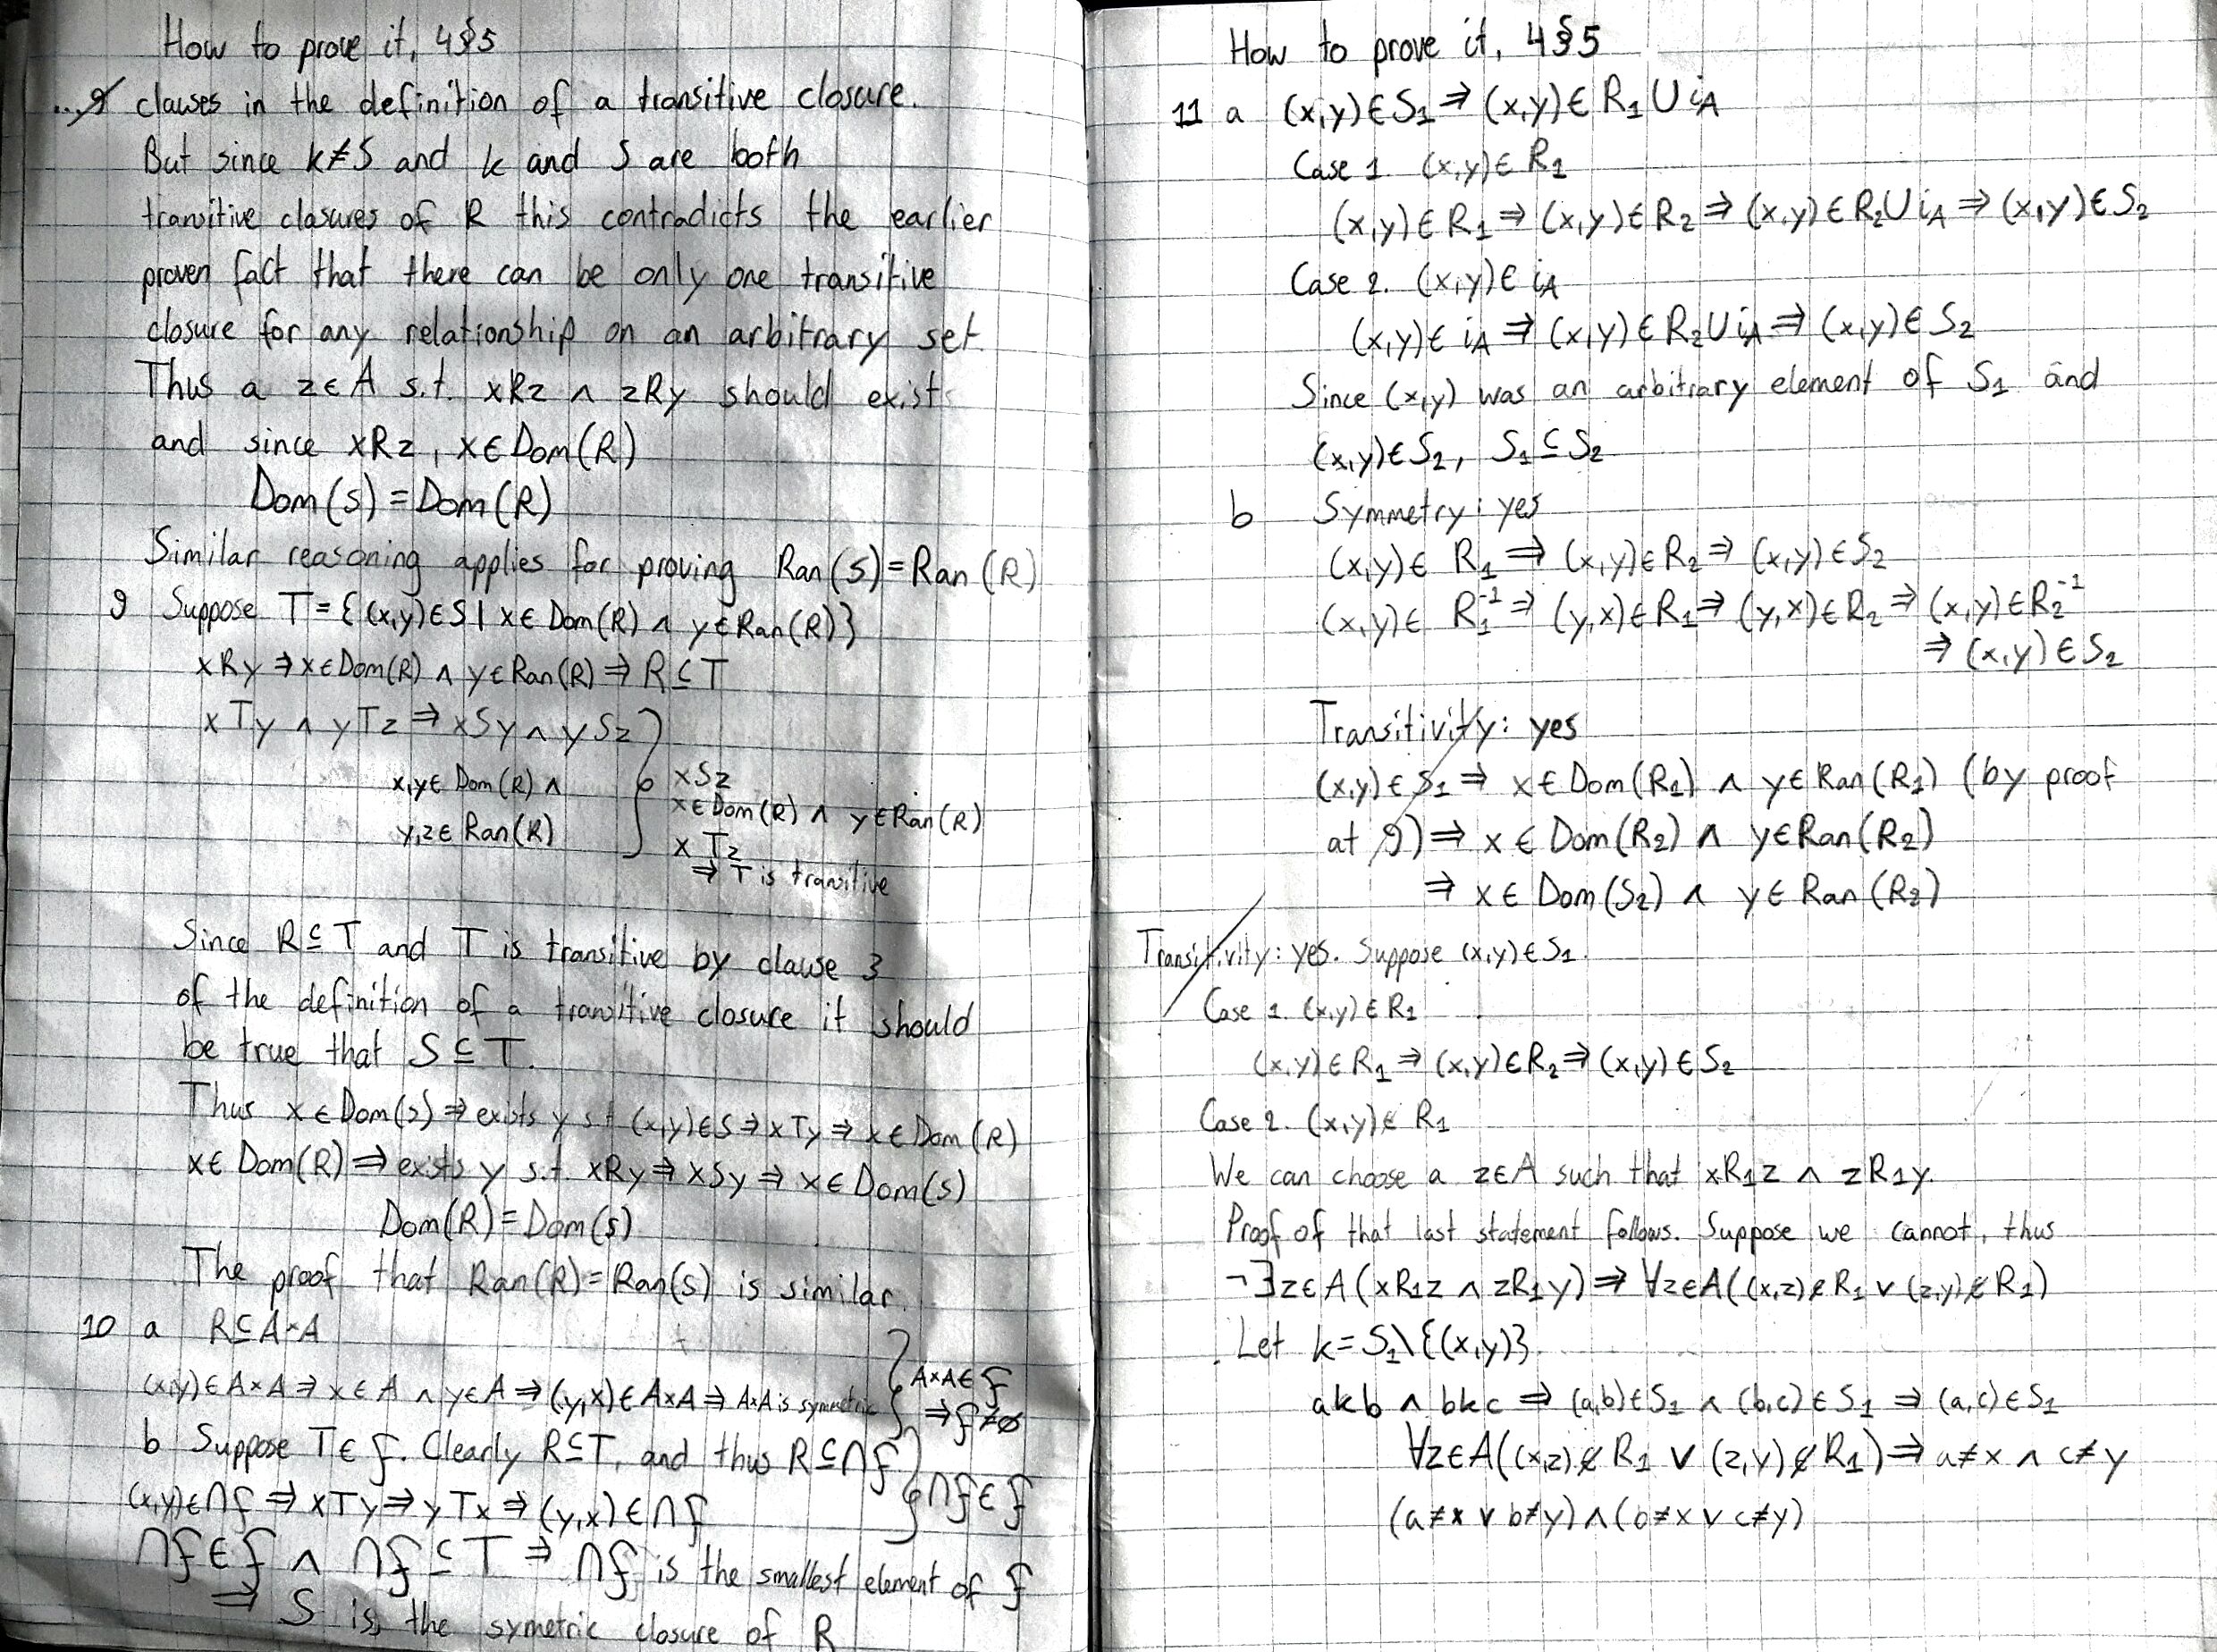 How to prove it, 4§5
...9 clauses in the definition of a transitive closure.
But since k≠S and k and S are both
transitive closures of R this contradicts the earlier
proven fact that there can be only one transitive
closure for any relationship on an arbitrary set.
Thus a z∈A s.t. xRz ∧ zRy should exist
and since xRz, x∈Dom(R)
Dom(S)=Dom(R)
Similar reasoning applies for proving Ran(S)=Ran(R)
9 Suppose T={(x,y)∈S| x∈Dom(R) ∧ y∈Ran(R)}
xRy ⇒ x∈Dom(R) ∧ y∈Ran(R) ⇒ R⊆T
xTy ∧ yTz ⇒ xSy ∧ ySz
x,y∈ Dom(R) ∧
y,z∈ Ran(R)
xSz
x∈Dom(R) ∧ y∈Ran(R)
xTz
⇒ T is transitive
Since R⊆T and T is transitive by clause 3
of the definition of a transitive closure it should
be true that S⊆T.
Thus x∈Dom(S) ⇒ exists y s.t (x,y)∈S ⇒ xTy ⇒ x∈Dom(R)
x∈Dom(R) ⇒ exists y s.t. xRy ⇒ xSy ⇒ x∈Dom(S)
Dom(R)=Dom(S)
The proof that Ran(R)=Ran(S) is similar.
10 a R⊆A×A
(x,y)∈A×A ⇒ x∈A ∧ y∈A ⇒ (y,x)∈A×A ⇒ A×A is symmetric
A×A∈F
⇒ F≠∅
b Suppose T∈F. Clearly R⊆T, and thus R⊆∩F
(x,y)∈∩F ⇒ xTy ⇒ yTx ⇒ (y,x)∈∩F
∩F∈F
∩F∈F ∧ ∩F⊆T ⇒ ∩F is the smallest element of F
⇒ S is the symetric closure of R
How to prove it, 4§5
11 a (x,y)∈S₁ ⇒ (x,y)∈R₁∪i_A
Case 1. (x,y)∈R₁
(x,y)∈R₁ ⇒ (x,y)∈R₂ ⇒ (x,y)∈R₂∪i_A ⇒ (x,y)∈S₂
Case 2. (x,y)∈i_A
(x,y)∈i_A ⇒ (x,y)∈R₂∪i_A ⇒ (x,y)∈S₂
Since (x,y) was an arbitrary element of S₁ and
(x,y)∈S₂, S₁⊆S₂
b Symmetry: yes
(x,y)∈R₁ ⇒ (x,y)∈R₂ ⇒ (x,y)∈S₂
(x,y)∈R₁⁻¹ ⇒ (y,x)∈R₁ ⇒ (y,x)∈R₂ ⇒ (x,y)∈R₂⁻¹
⇒ (x,y)∈S₂
Transitivity: yes
(x,y)∈S₁ ⇒ x∈Dom(R₁) ∧ y∈Ran(R₁) (by proof
at 9) ⇒ x∈Dom(R₂) ∧ y∈Ran(R₂)
⇒ x∈Dom(S₂) ∧ y∈Ran(R₂)
Transitivity: yes. Suppose (x,y)∈S₁.
Case 1. (x,y)∈R₁
(x,y)∈R₁ ⇒ (x,y)∈R₂ ⇒ (x,y)∈S₂
Case 2. (x,y)∉R₁
We can choose a z∈A such that xR₁z ∧ zR₁y.
Proof of that last statement follows. Suppose we cannot, thus
¬∃z∈A(xR₁z ∧ zR₁y) ⇒ ∀z∈A((x,z)∉R₁ ∨ (z,y)∉R₁)
Let k=S₁\{(x,y)}.
akb ∧ bkc ⇒ (a,b)∈S₁ ∧ (b,c)∈S₁ ⇒ (a,c)∈S₁
∀z∈A((x,z)∉R₁ ∨ (z,y)∉R₁) ⇒ a≠x ∧ c≠y
(a≠x ∨ b≠y) ∧ (b≠x ∨ c≠y)